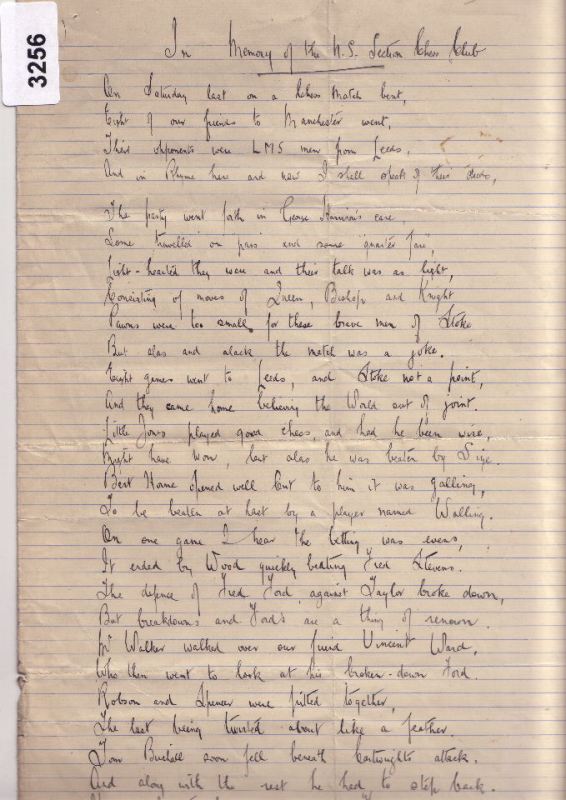 3256
In Memory of the N.S. Section Chess Club
On Saturday last on a Chess Match bent,
Eight of our friends to Manchester went,
Their opponents were LMS men from Leeds,
And in Rhyme here and now I shall speak of their deeds,
The party went forth in George Harrison's care,
Some travelled "on pass" and some "quarter fare",
Light-hearted they were and their talk was as light,
Consisting of moves of Queen, Bishop and Knight
Pawns were too small for these brave men of Stoke
But alas and alack the match was a joke.
Eight games went to Leeds, and Stoke not a point,
And they came home believing the World out of joint.
Little Jones played good chess, and had he been wise,
Might have won, but alas he was beaten by Size.
Bert Horne opened well but to him it was galling,
To be beaten at last by a player named Walling.
On one game I hear the betting was evens,
It ended by Wood quickly beating Fred Stevens.
The defence of Fred Ford against Taylor broke down,
But breakdowns and Fords are a thing of renown.
Mr Walker walked over our friend Vincent Ward,
Who then went to look at his broken-down Ford.
Robson and Spencer were pitted together,
The last being twisted about like a feather.
Tom Birchall soon fell beneath Cartwrights attack.
And along with the rest he had to step back.